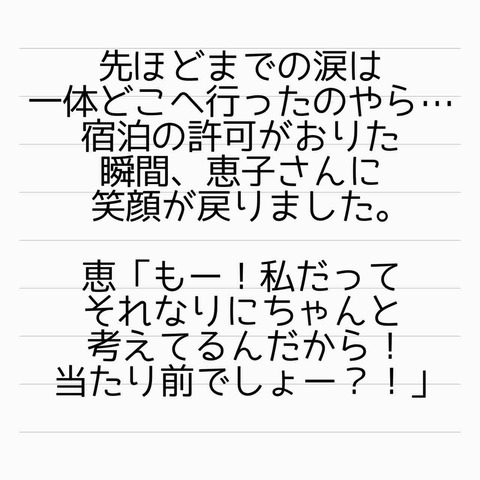 先ほどまでの涙は
一体どこへ行ったのやら…
宿泊の許可がおりた
瞬間、恵子さんに
笑顔が戻りました。
恵「もー！私だって
それなりにちゃんと
考えてるんだから！
当たり前でしょー？！」